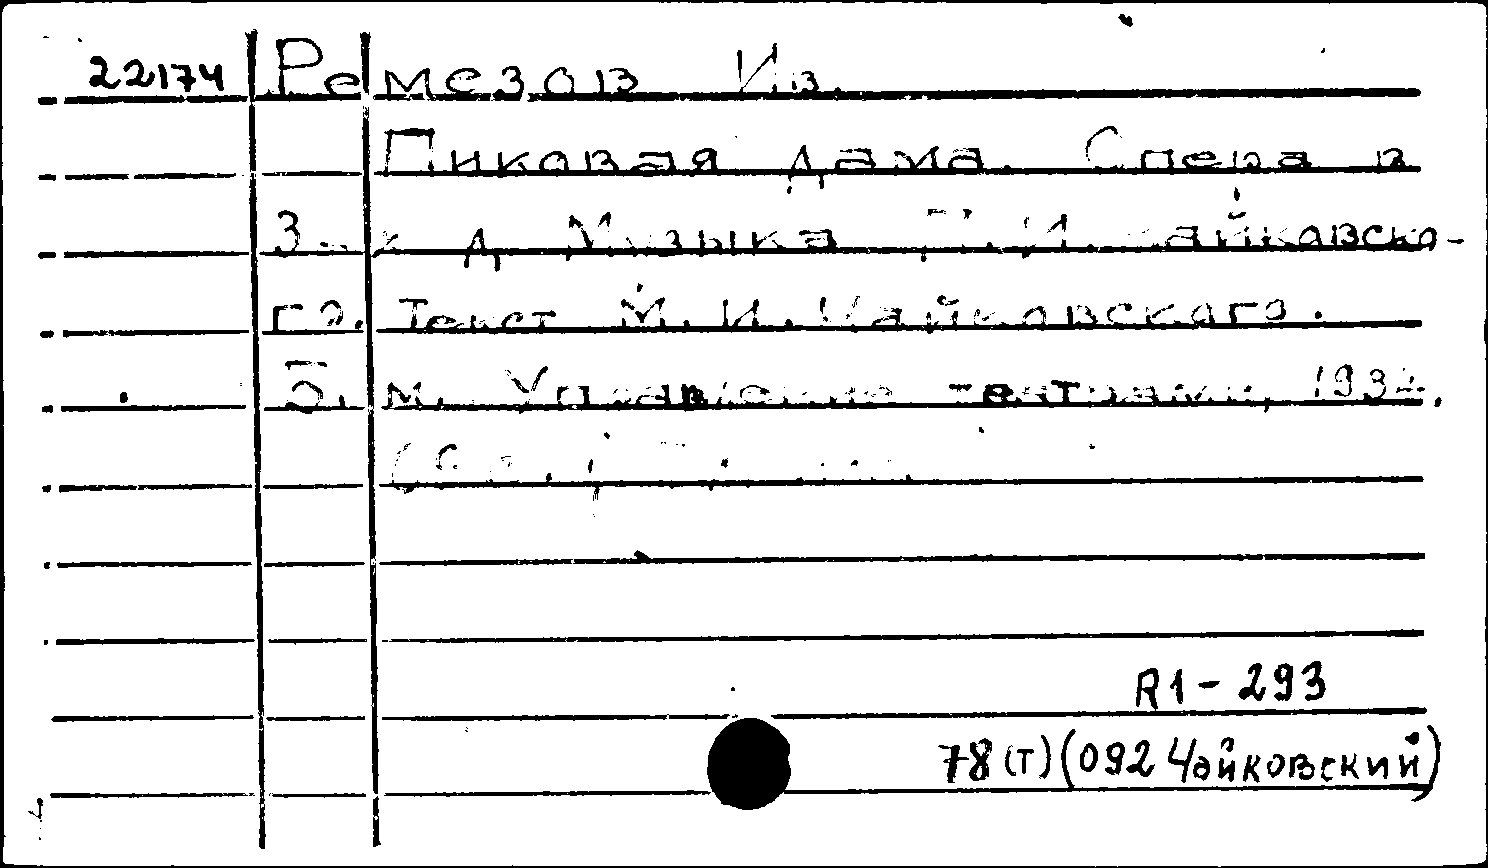 22174 Ремезов Ив.
Пиковая дама. Опера в
3-х д. Музыка П. И. Чайковско-
го. Текст М. И. Чайковского.
Б. м. Управление театрами, 193
R1-293
78(т)(092 Чайковский)